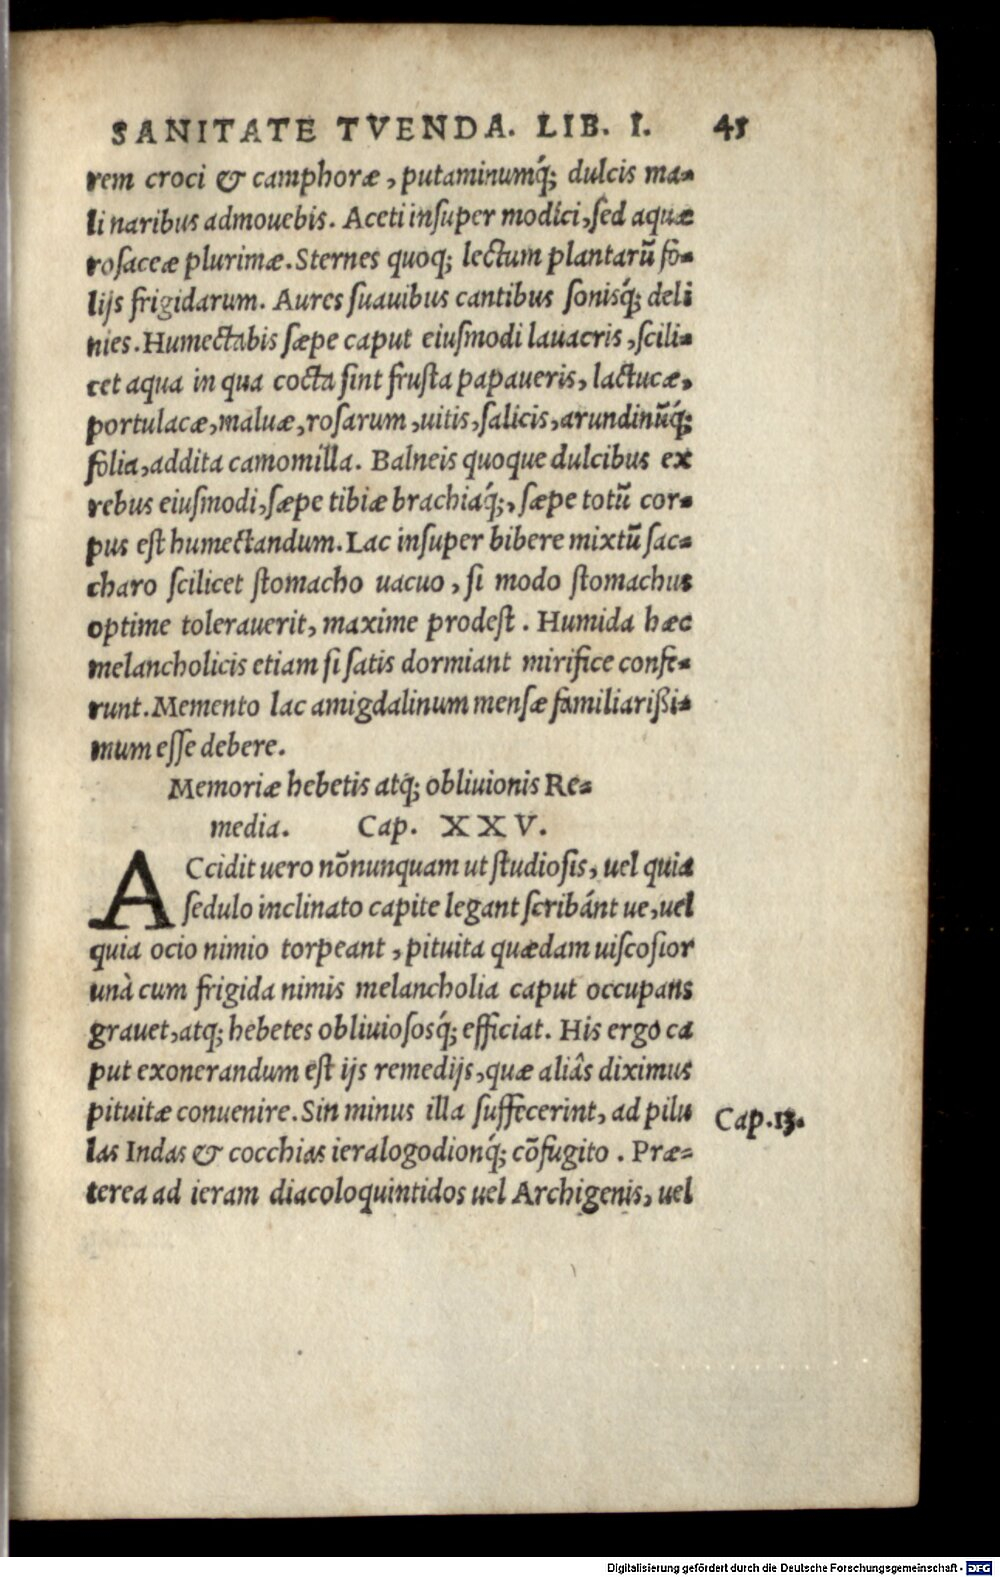 SANITATE TVENDA. LIB. I. 45
rem croci & camphoræ, putaminumq́; dulcis ma-
li naribus admouebis. Aceti insuper modici, sed aquæ
rosaceæ plurimæ. Sternes quoq; lectum plantarū fo-
lijs frigidarum. Aures suauibus cantibus sonisq́; deli
nies. Humectabis sæpe caput eiusmodi lauacris, scili-
cet aqua in qua cocta sint frusta papaueris, lactucæ,
portulacæ, maluæ, rosarum, uitis, salicis, arundinūq́;
folia, addita camomilla. Balneis quoque dulcibus ex
rebus eiusmodi, sæpe tibiæ brachiaq́;, sæpe totū cor-
pus est humectandum. Lac insuper bibere mixtū sac-
charo scilicet stomacho uacuo, si modo stomachus
optime tolerauerit, maxime prodest. Humida hæc
melancholicis etiam si satis dormiant mirifice confe-
runt. Memento lac amigdalinum mensæ familiarißi-
mum esse debere.
Memoriæ hebetis atq; obliuionis Re-
media. Cap. XXV.
ACcidit uero nōnunquam ut studiosis, uel quia
sedulo inclinato capite legant scribánt ue, uel
quia ocio nimio torpeant, pituita quædam uiscosior
unà cum frigida nimis melancholia caput occupans
grauet, atq; hebetes obliuiososq́; efficiat. His ergo ca
put exonerandum est ijs remedijs, quæ aliâs diximus
pituitæ conuenire. Sin minus illa suffecerint, ad pilu
las Indas & cocchias ieralogodionq́; cōfugito. Præ-
terea ad ieram diacoloquintidos uel Archigenis, uel
Cap. 13.
Digitalisierung gefördert durch die Deutsche Forschungsgemeinschaft - DFG